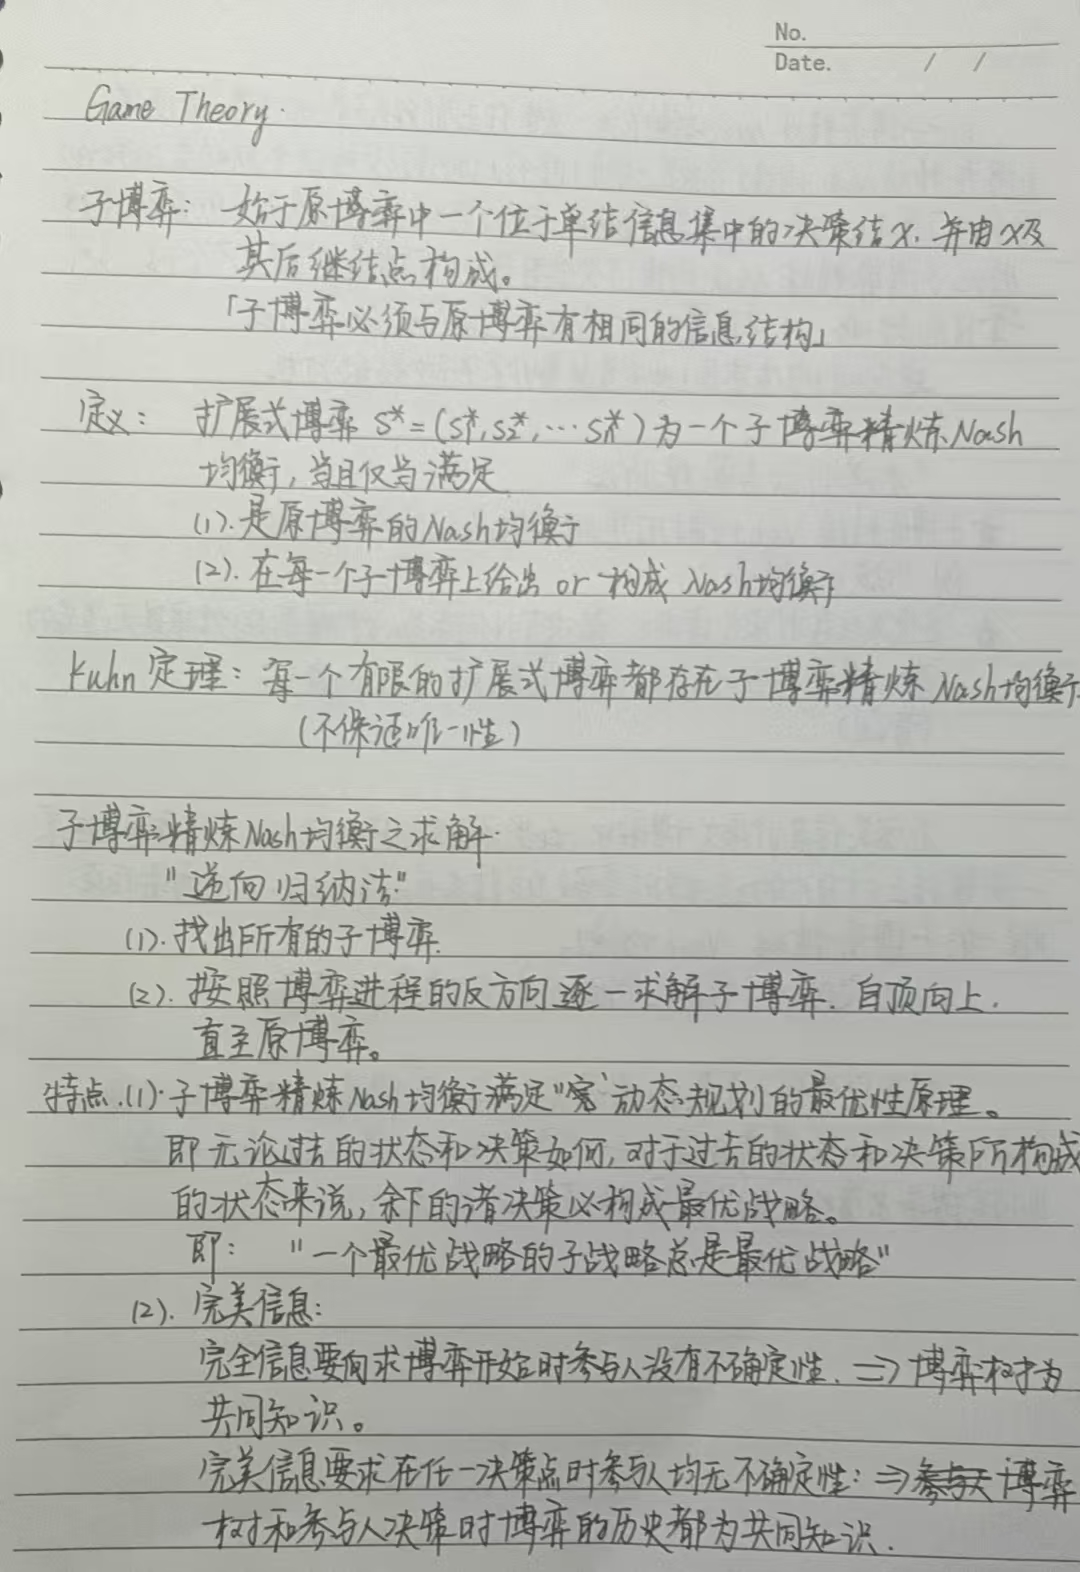 No.
Date. / /
Game Theory.
子博弈: 一始于原博弈中一个位于单结信息集中的决策结x. 并由x及
其后继结点构成。
「子博弈必须与原博弈有相同的信息结构」
定义: 扩展式博弈 S* = (S₁*, S₂*, ⋯ Sₙ*) 为一个子博弈精炼Nash
均衡, 当且仅当满足
(1). 是原博弈的Nash均衡
(2). 在每一个子博弈上给出 or 构成 Nash均衡
Kuhn 定理: 每一个有限的扩展式博弈都存在子博弈精炼 Nash均衡
(不保证唯一性)
子博弈精炼Nash均衡之求解.
"逆向归纳法"
(1). 找出所有的子博弈.
(2). 按照博弈进程的反方向逐一求解子博弈. 自顶向上.
直至原博弈。
特点.(1). 子博弈精炼Nash均衡满足"宽"动态规划的最优性原理。
即无论过去的状态和决策如何, 对于过去的状态和决策所构成
的状态来说, 余下的诸决策必构成最优战略。
即: "一个最优战略的子战略总是最优战略"
(2). 完美信息:
完全信息要求博弈开始时参与人没有不确定性. ⇒ 博弈树为
共同知识。
完美信息要求在任一决策点时参与人均无不确定性: ⇒ 参与人 博弈
树和参与人决策时博弈的历史都为共同知识.